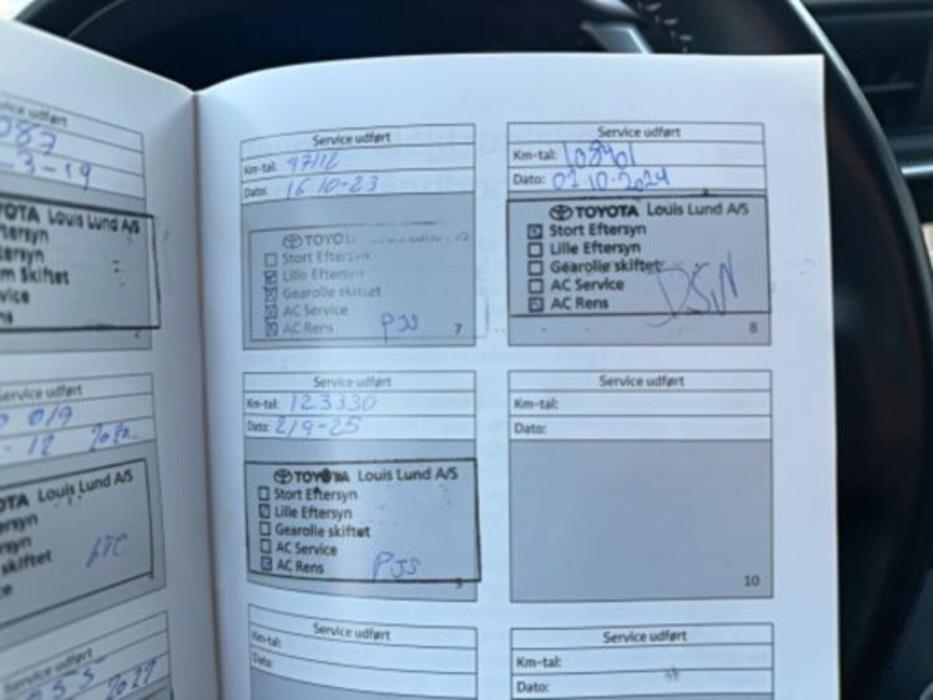 Service udført
087
-3-19
TOYOTA Louis Lund A/S
ftersyn
tersyn
m Skiftet
vice
ns
Service udført
019
. 12
OTA Louis Lund A/S
ersyn
rsyn
skiftet
ce
Service udført
2022
Service udført
Km-tal: 97112
Dato: 16 10-23
TOYO
Stort Eftersyn
Lille Eftersyn
Gearolie skiftet
AC Service
AC Rens PJS
7
Service udført
Km-tal: 108901
Dato: 02 10-2024
TOYOTA Louis Lund A/S
Stort Eftersyn
Lille Eftersyn
Gearolie skiftet
AC Service
AC Rens
8
Service udført
Km-tal: 123330
Dato: 2/9-25
TOYOTA Louis Lund A/S
Stort Eftersyn
Lille Eftersyn
Gearolie skiftet
AC Service
AC Rens PJS
9
Service udført
Km-tal:
Dato:
10
Service udført
Km-tal:
Dato:
Service udført
Km-tal:
Dato: